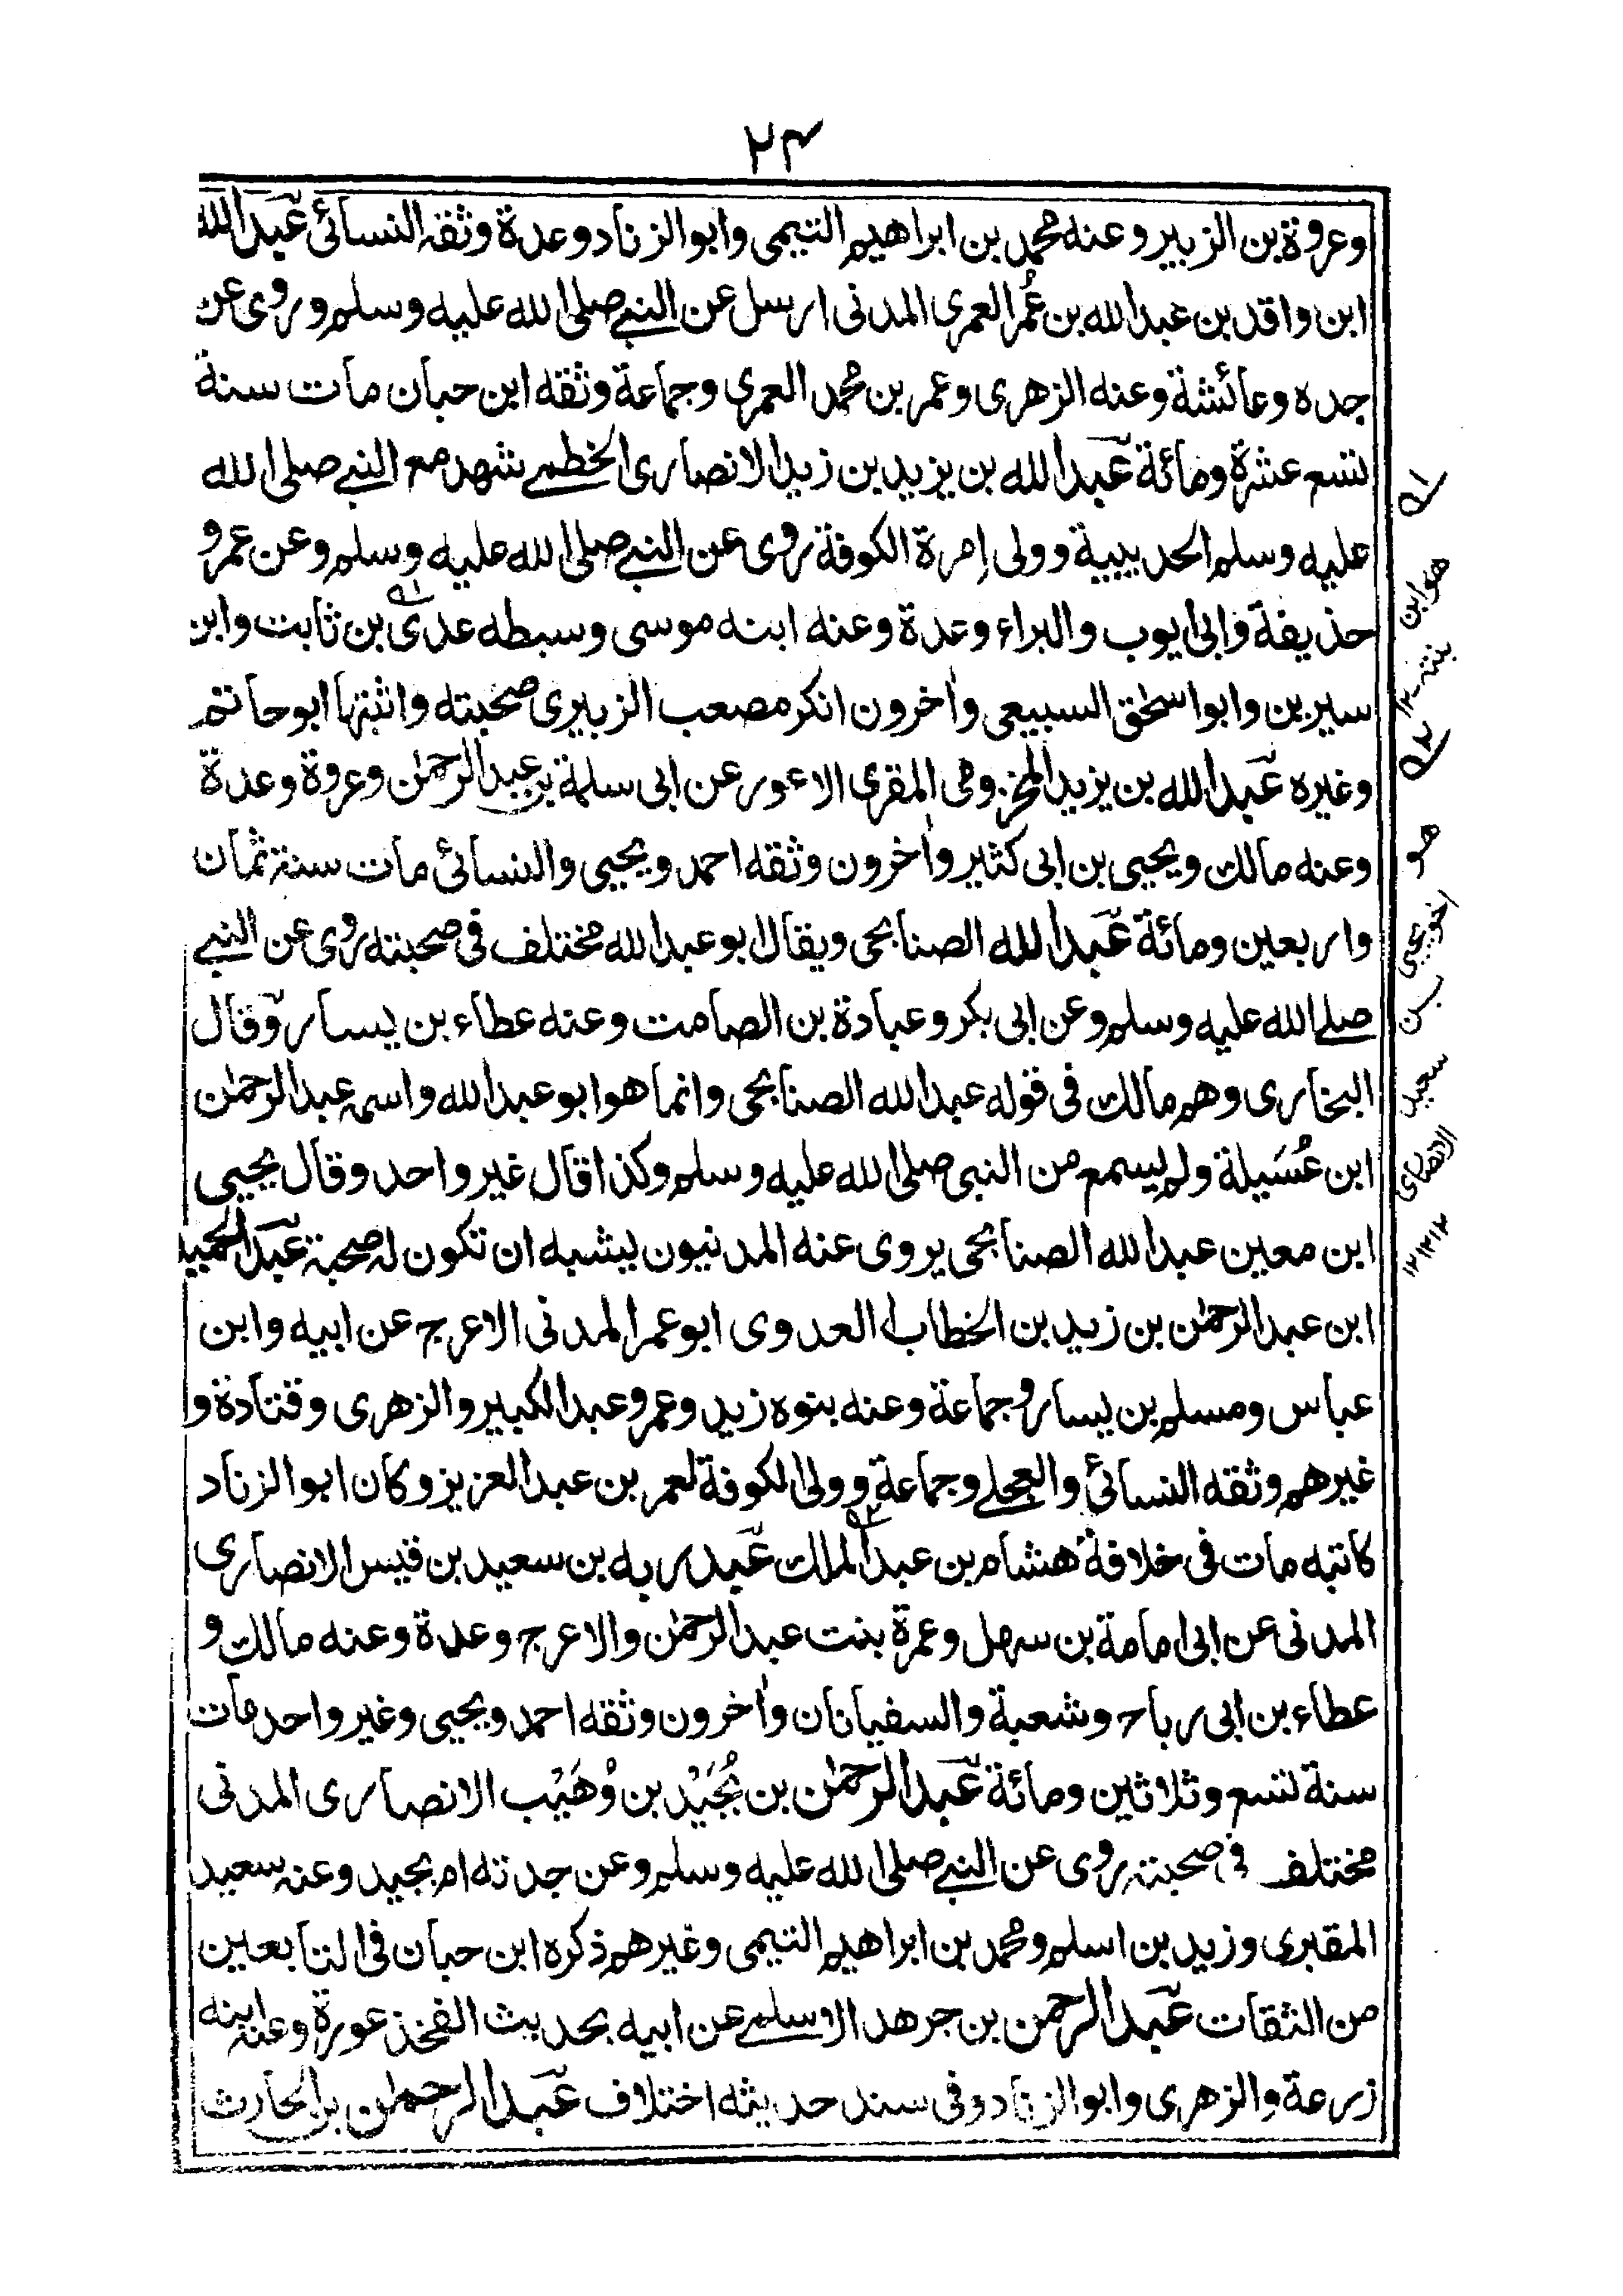 ٢٤
وعروة بن الزبير وعنه محمد بن ابراهيم التيمى وابو الزناد وعدة وثقه النسائى عبد الله
ابن واقد بن عبد الله بن عُمر العمرى المدنى ارسل عن النبي صلى الله عليه وسلم وروى عن
جده وعائشة وعنه الزهرى وعمر بن محمد العمرى وجماعة وثقه ابن حبان مات سنة
تسع عشرة ومائة عبد الله بن يزيد بن زيد الانصارى الخطمي شهد مع النبي صلى الله
عليه وسلم الحديبية وولى إمرة الكوفة روى عن النبي صلى الله عليه وسلم وعن عمر و
حذيفة وابى ايوب والبراء وعدة وعنه ابنه موسى وسبطه عدى بن ثابت وابن
سيرين وابو اسحٰق السبيعى واٰخرون انكر مصعب الزبيرى صحبته واثبتها ابو حاتم
وغيره عبد الله بن يزيد المخزومى المقرى الاعور عن ابى سلمة بن عبد الرحمٰن وعروة وعدة
وعنه مالك ويحيى بن ابى كثير واٰخرون وثقه احمد ويحيى والنسائى مات سنة ثمان
واربعين ومائة عبد الله الصنابحى ويقال ابو عبد الله مختلف فى صحبته روى عن النبي
صلى الله عليه وسلم وعن ابى بكر وعبادة بن الصامت وعنه عطاء بن يسار وقال
البخارى وهم مالك فى قوله عبد الله الصنابحى وانما هو ابو عبد الله واسمه عبد الرحمٰن
ابن عُسَيلة ولم يسمع من النبى صلى الله عليه وسلم وكذا قال غير واحد وقال يحيى
ابن معين عبد الله الصنابحى يروى عنه المدنيون يشبه ان تكون له صحبة عبد الحميد
ابن عبد الرحمٰن بن زيد بن الخطاب العدوى ابو عمر المدنى الاعرج عن ابيه وابن
عباس ومسلم بن يسار وجماعة وعنه بنوه زيد وعمر وعبد الكبير والزهرى وقتادة و
غيرهم وثقه النسائي والعجلي وجماعة وولى الكوفة لعمر بن عبد العزيز وكان ابو الزناد
كاتبه مات فى خلافة هشام بن عبد الملك عبد ربه بن سعيد بن قيس الانصارى
المدنى عن ابى امامة بن سهل وعمرة بنت عبد الرحمٰن والاعرج وعدة وعنه مالك و
عطاء بن ابى رباح وشعبة والسفيانان واٰخرون وثقه احمد ويحيى وغير واحد مات
سنة تسع وثلاثين ومائة عبد الرحمٰن بن بُجَيْد بن وُهَيْب الانصارى المدنى
مختلف فى صحبته روى عن النبي صلى الله عليه وسلم وعن جدته ام بجيد وعنه سعيد
المقبرى وزيد بن اسلم ومحمد بن ابراهيم التيمى وغيرهم ذكره ابن حبان فى التابعين
من الثقات عبد الرحمن بن جرهد الاسلمي عن ابيه بحديث الفخذ عورة وعنه ابنه
زرعة والزهرى وابو الزناد وفى سند حديثه اختلاف عبد الرحمٰن بن الحارث
له
هو ابن
بنته ١٢
٢ه
هو
اخو يحيى
بن
سعيد
الانصارى